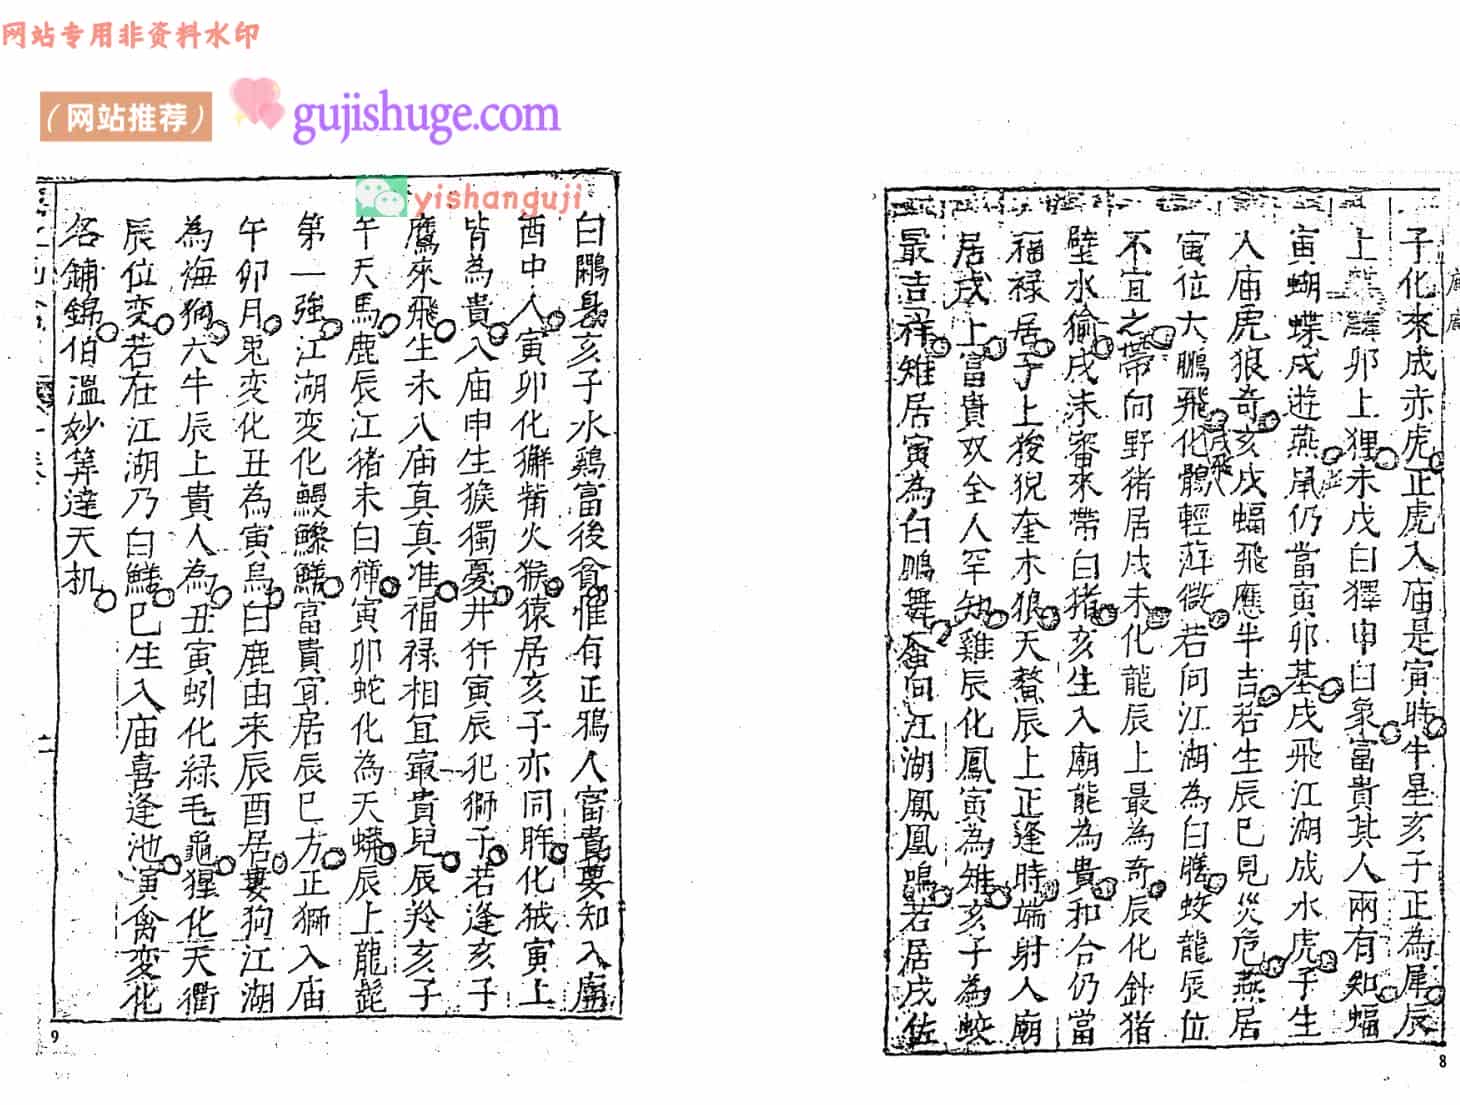 网站专用非资料水印
（网站推荐）
gujishuge.com
yishanguji
子化來成赤虎正虎入庙是寅時牛星亥子正為犀辰
上卯上狸未戌白獐申白象富貴其人兩有知蝠
寅蝴蝶戌遊燕尾仍當寅卯基戌飛江湖成水虎子生
入庙虎狼奇亥戌蝠飛應半吉若生辰巳見災危燕居
寅位大鵬飛化鶻輕薄微若问江湖為白鱔蛟龍辰位
不宜之帶向野猪居戌未化龍辰上最為奇辰化針猪
壁水㺄戌未審來帶白猪亥生入廟能為貴和合仍當
福禄居子上狻猊奎木狼天獒辰上正逢時端射人廟
居戌上富貴双全人罕知雞辰化鳳寅為雉亥子為蛟
最吉祥雉居寅為白鵰舞奮向江湖鳳凰鳴若居戌位
8
白鷴㬌亥子水鷄富後貧惟有正鴉人富貴要知入廟
酉中人寅卯化獬觜火猴猿居亥子亦同眸化狨寅上
皆為貴入庙申生猴獨憂井犴寅辰犯獅子若逢亥子
鷹來飛生未入庙真真准福禄相宜最貴兒辰羚亥子
午天馬鹿辰江猪未白獐寅卯蛇化為天蟒辰上龍髭
第一強江湖变化鰻鱀鱔富貴宜居辰巳方正獅入庙
午卯月兎变化丑為寅烏白鹿由来辰酉居婁狗江湖
為海狗六牛辰上貴人為丑寅蚓化緑毛龜猩化天衢
辰位变若在江湖乃白鱔巳生入庙喜逢池寅禽变化
名鋪錦伯溫妙筭達天机
9